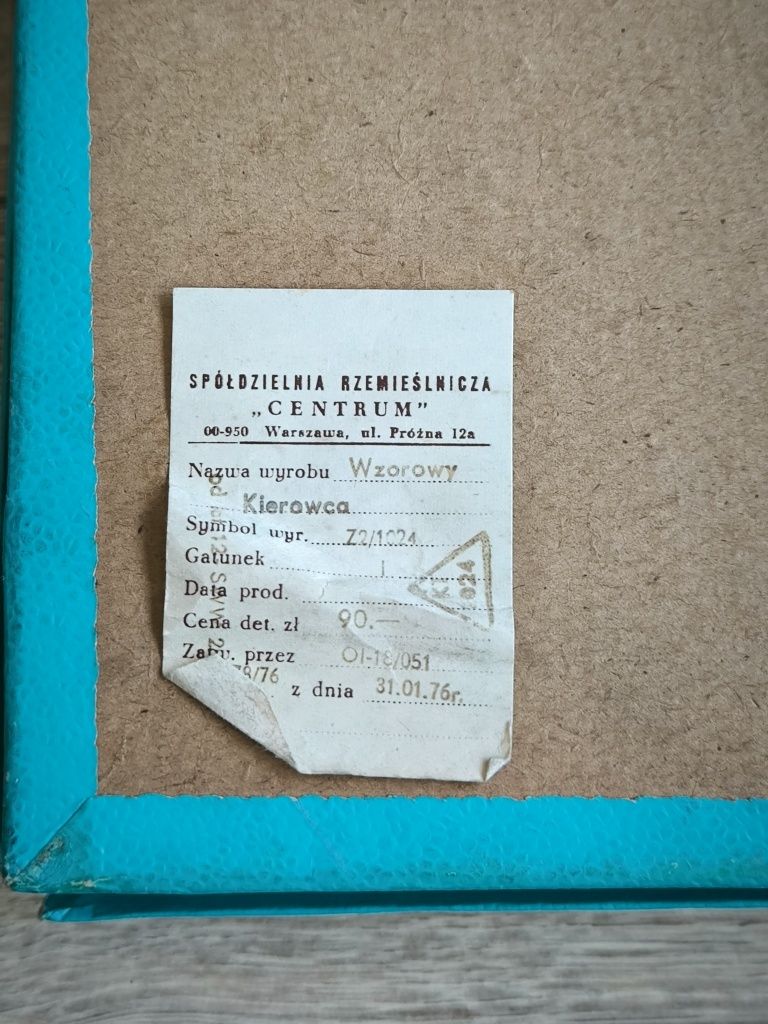 SPÓŁDZIELNIA RZEMIEŚLNICZA
„CENTRUM”
00-950 Warszawa, ul. Próżna 12a
Nazwa wyrobu Wzorowy
Kierowca
Symbol wyr. Z2/1024
Gatunek I
Data prod.
Cena det. zł 90.—
Zatw. przez OI-18/051
78/76 z dnia 31.01.76r.
KJ
024